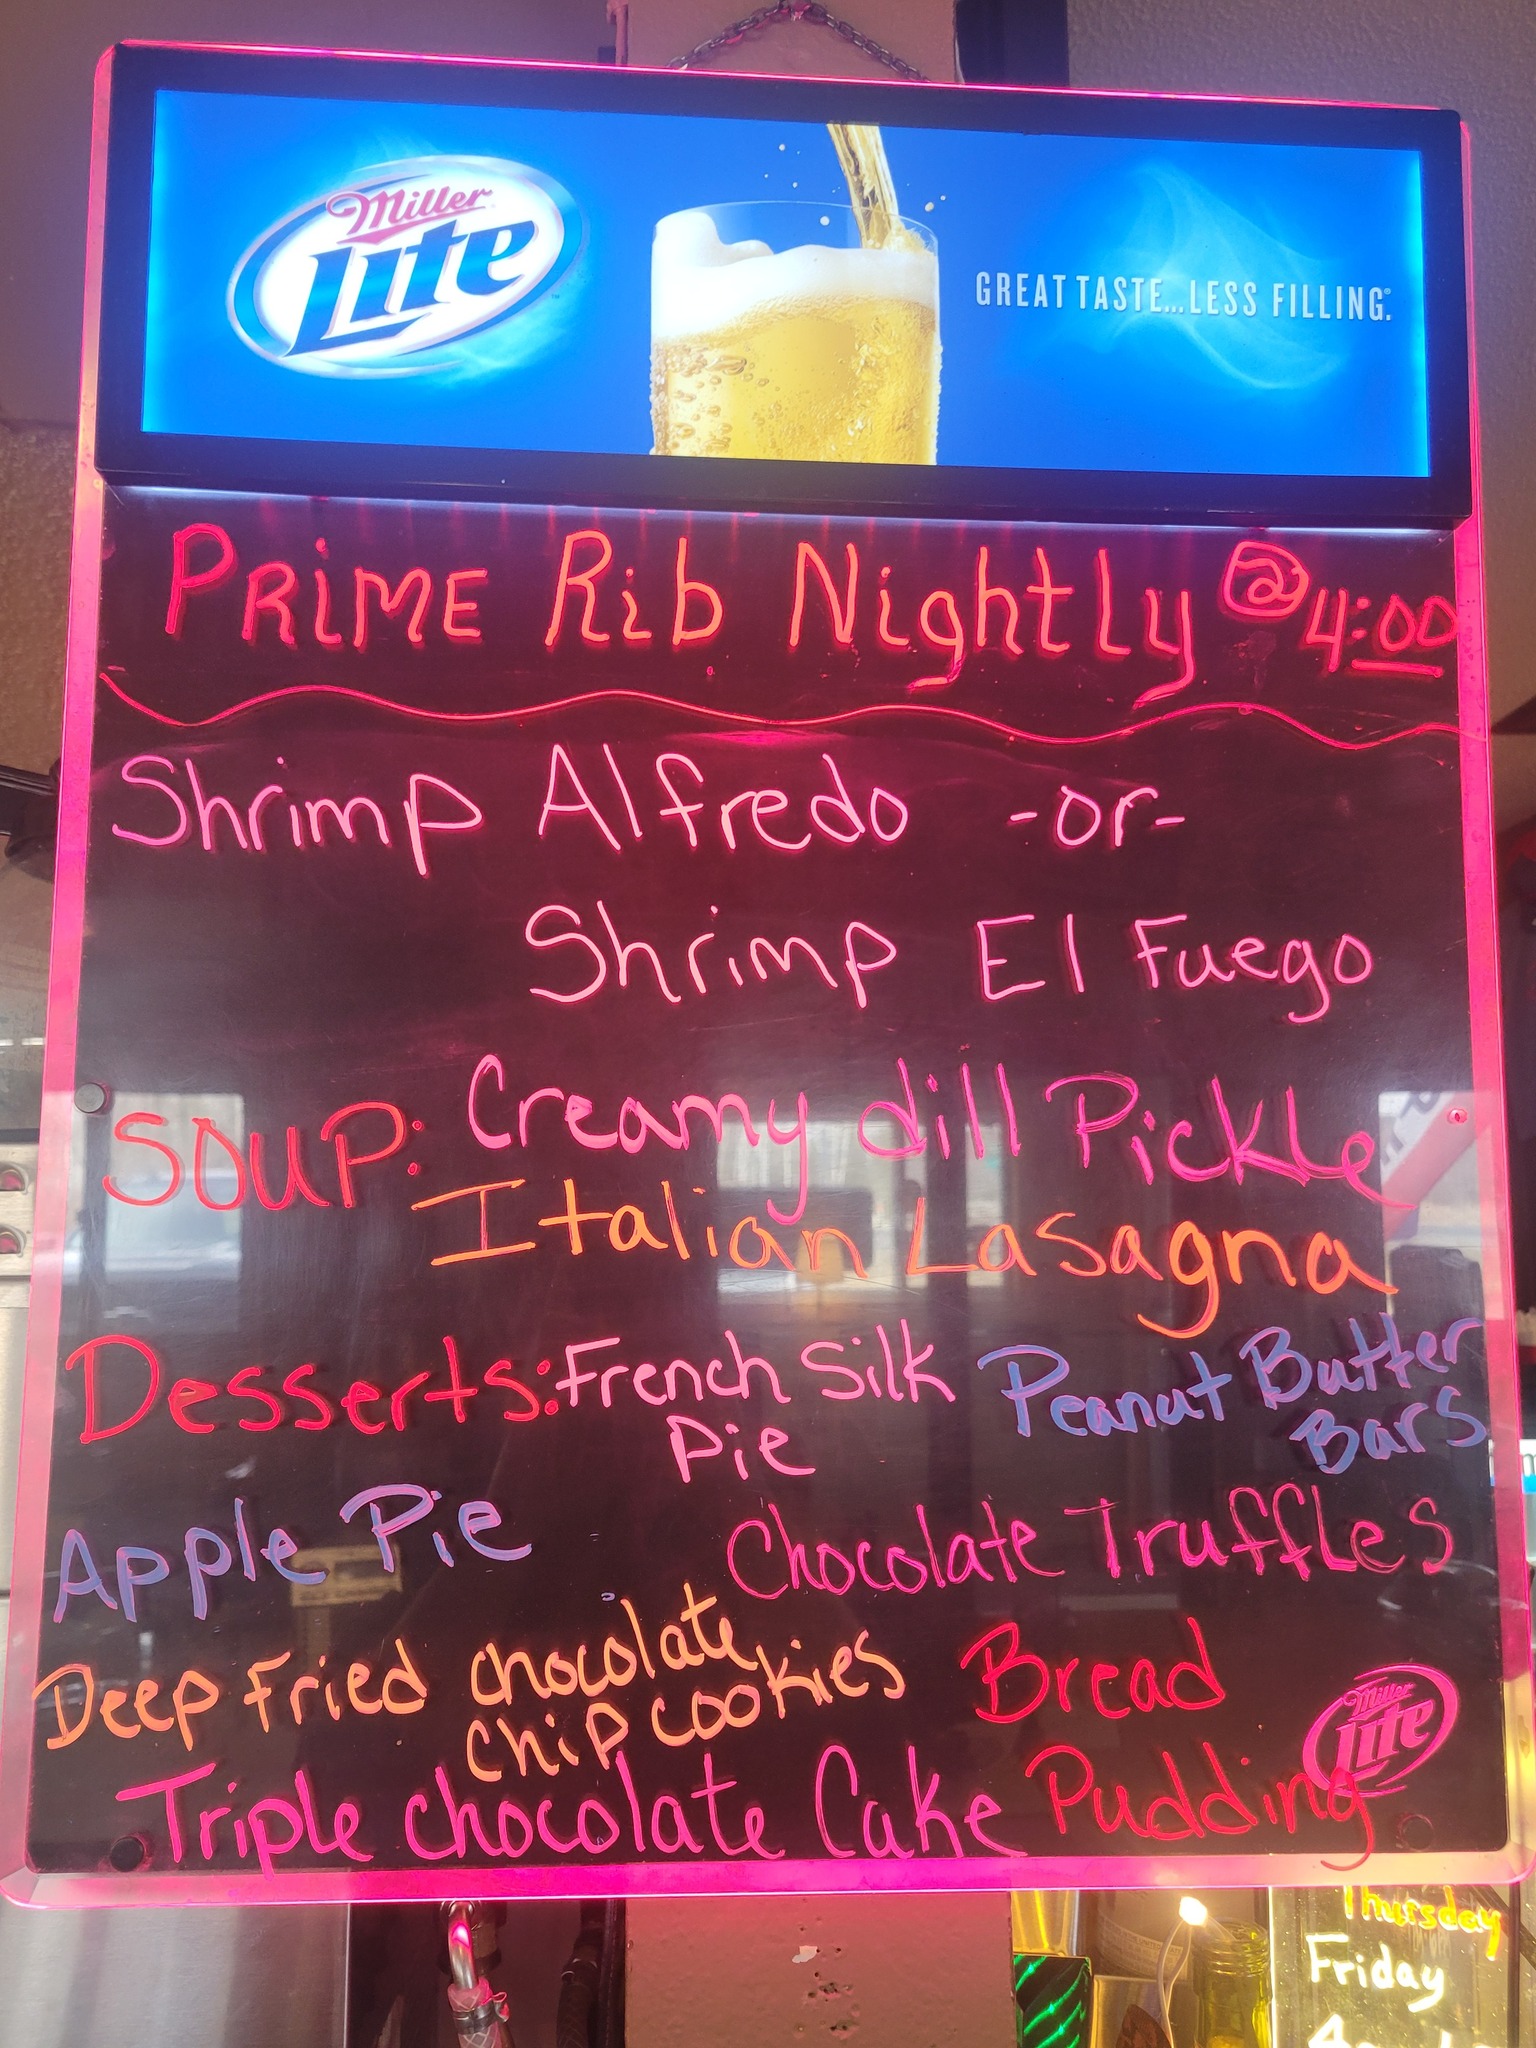 Miller
Lite
GREAT TASTE...LESS FILLING.®
PRiME Rib Nightly @ 4:00
Shrimp Alfredo -or-
Shrimp El Fuego
SOUP: Creamy dill Pickle
Italian Lasagna
Desserts: French Silk Pie
Peanut Butter Bars
Apple Pie
Chocolate Truffles
Deep Fried chocolate chip cookies
Bread Pudding
Triple chocolate Cake
Miller
Lite
Thursday
Friday